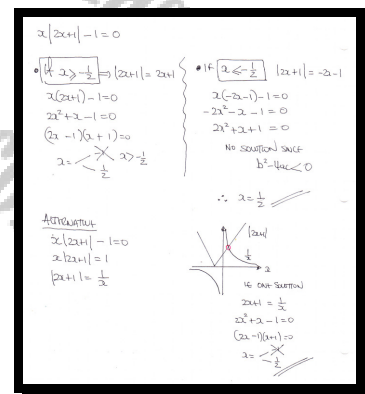 x|2x+1| - 1 = 0
• If x ≥ -1/2 ⇒ |2x+1| = 2x+1
x(2x+1) - 1 = 0
2x² + x - 1 = 0
(2x - 1)(x + 1) = 0
x = -1 x > -1/2
1/2
• If x ≤ -1/2 |2x+1| = -2x-1
x(-2x-1) - 1 = 0
-2x² - x - 1 = 0
2x² + x + 1 = 0
NO SOLUTION SINCE
b² - 4ac < 0
∴ x = 1/2
ALTERNATIVE
x|2x+1| - 1 = 0
x|2x+1| = 1
|2x+1| = 1/x
|2x+1|
1/x
x
IE ONE SOLUTION
2x+1 = 1/x
2x² + x - 1 = 0
(2x-1)(x+1) = 0
x = -1
1/2